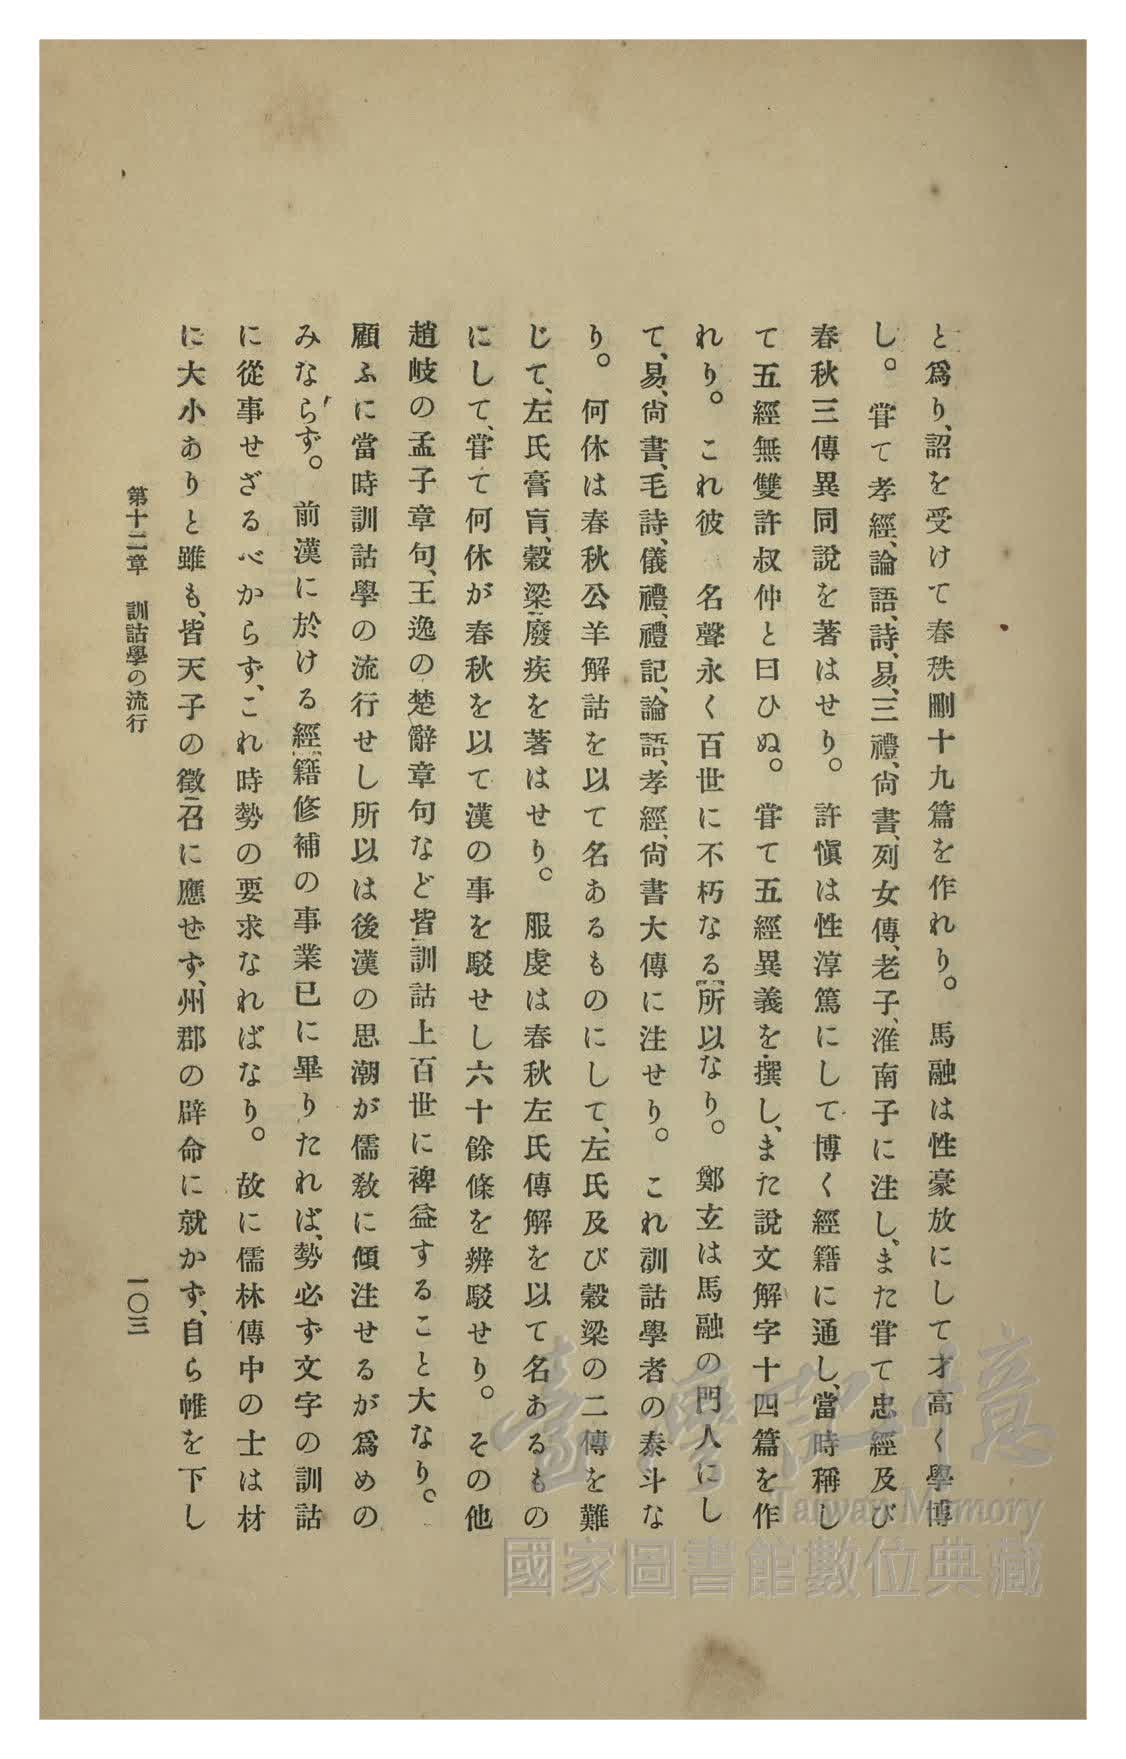 と爲り、詔を受けて春秩刪十九篇を作れり。　馬融は性豪放にして才高く學博
し。　甞て孝經、論語、詩、易、三禮、尙書、列女傳、老子、淮南子に注し、また甞て忠經及び
春秋三傳異同說を著はせり。　許愼は性淳篤にして博く經籍に通し、當時稱し
て五經無雙許叔仲と曰ひぬ。　甞て五經異義を撰し、また說文解字十四篇を作
れり。　これ彼　名聲永く百世に不朽なる所以なり。　鄭玄は馬融の門人にし
て、易、尙書、毛詩、儀禮、禮記、論語、孝經、尙書大傳に注せり。　これ訓詁學者の泰斗な
り。　何休は春秋公羊解詁を以て名あるものにして、左氏及び穀梁の二傳を難
じて、左氏膏肓、穀梁廢疾を著はせり。　服虔は春秋左氏傳解を以て名あるもの
にして、甞て何休が春秋を以て漢の事を駁せし六十餘條を辨駁せり。　その他
趙岐の孟子章句、王逸の楚辭章句など皆訓詁上百世に裨益すること大なり。
顧ふに當時訓詁學の流行せし所以は後漢の思潮が儒敎に傾注せるが爲めの
みならず。　前漢に於ける經籍修補の事業已に畢りたれば、勢必ず文字の訓詁
に從事せざるべからず、これ時勢の要求なればなり。　故に儒林傳中の士は材
に大小ありと雖も、皆天子の徵召に應ぜず、州郡の辟命に就かず、自ら帷を下し
第十二章　訓詁學の流行　一〇三
臺灣記憶
Taiwan Memory
國家圖書館數位典藏